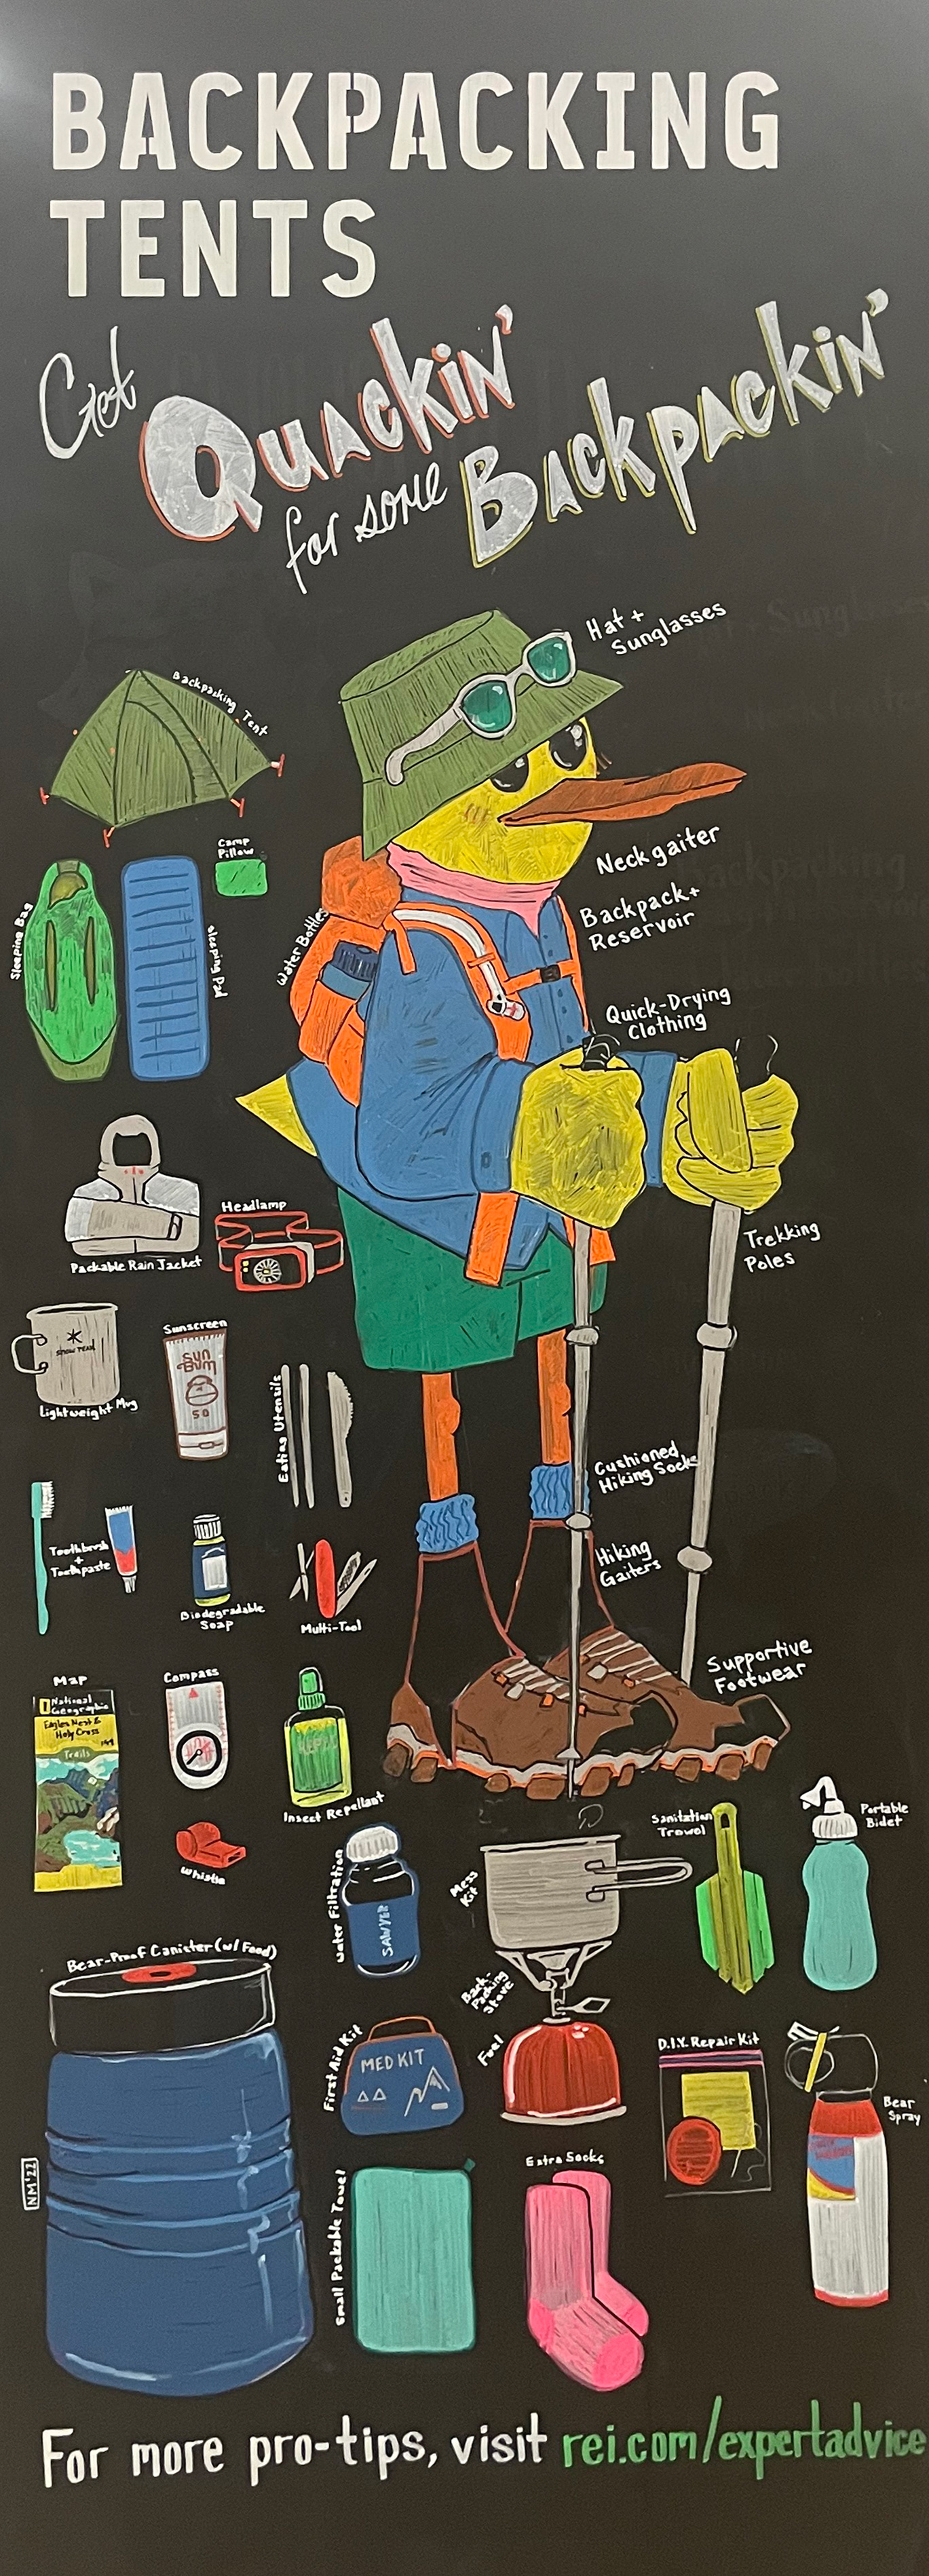 BACKPACKING
TENTS
Get
Quackin'
for some
Backpackin'
Hat +
Sunglasses
Backpacking Tent
Camp
Pillow
Neck gaiter
Backpack +
Reservoir
Sleeping Bag
Sleeping Pad
Water Bottles
Quick-Drying
Clothing
Packable Rain Jacket
Headlamp
Trekking
Poles
SNOW PEAK
Lightweight Mug
Sunscreen
SUN
BUM
50
Eating Utensils
Cushioned
Hiking Socks
Toothbrush
+
Toothpaste
Biodegradable
Soap
Multi-Tool
Hiking
Gaiters
Supportive
Footwear
Map
National
Geographic
Eagles Nest &
Holy Cross
149
Trails
Compass
REPEL
Insect Repellant
Whistle
Water Filtration
SAWYER
Mess
Kit
Sanitation
Trowel
Portable
Bidet
Bear-Proof Canister (w/ Food)
Back-
Packing
Stove
Fuel
First Aid Kit
MED KIT
D.I.Y. Repair Kit
Bear
Spray
NM'22
Small Packable Towel
Extra Socks
For more pro-tips, visit rei.com/expertadvice